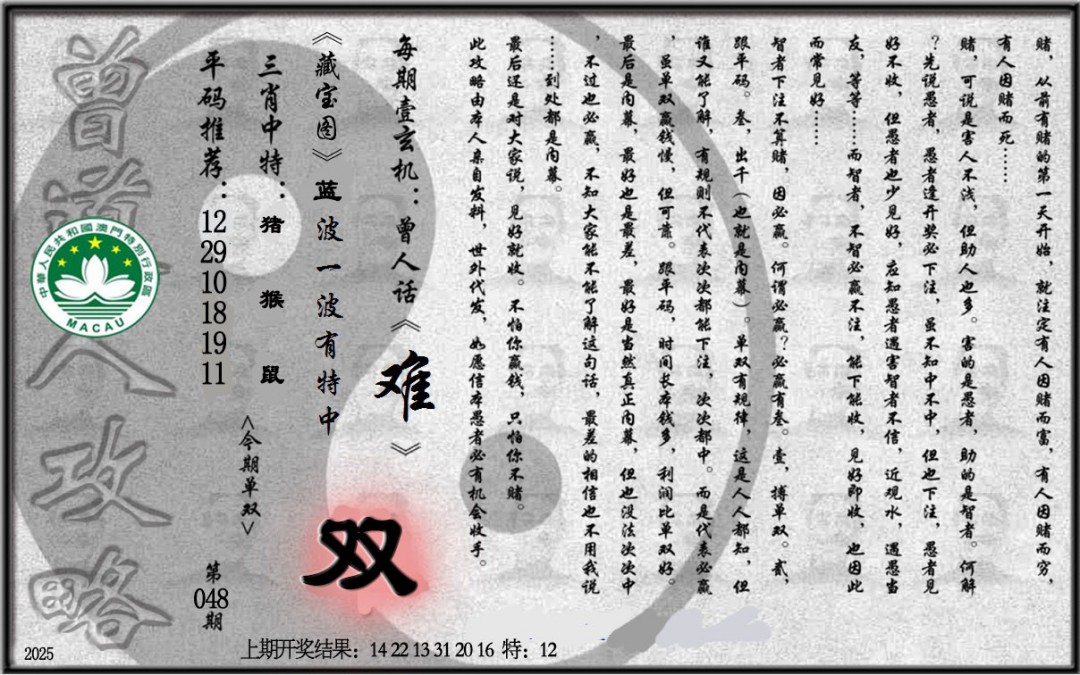 赌，从前有赌的第一天开始，就注定有人因赌而富，有人因赌而穷，
有人因赌而死……
赌，可说是害人不浅，但助人也多。害的是愚者，助的是智者。何解
？先说愚者，愚者逢开奖必下注，虽不知中不中，但也下注，愚者见
好不收，但愚者也少见好，应知愚者遇害智者不信，近观水，遇愚当
友，等等……而智者，不智必赢不注，能下能收，见好即收，也因此
而常见好……
智者下注不算赌，因必赢。何谓必赢？必赢有叁。壹，搏单双。贰，
跟平码。叁，出千（也就是内幕）。单双有规律，这是人人都知，但
谁又能了解，有规则不代表次次都能下注，次次都中。而是代表必赢
，虽单双赢钱慢，但可靠。跟平码，时间长本钱多，利润比单双好。
最后是内幕，最好也是最差，最好是当然真正内幕，但也没法次次中
，不过也必赢，不知大家能不能了解这句话，最差的相信也不用我说
……到处都是内幕。
最后还是对大家说，见好就收。不怕你赢钱，只怕你不赌。
此攻略由本人亲自发料，世外代发，如愿信本愚者必有机会收手。
每期壹玄机：曾人话《难》
《藏宝图》蓝波一波有特中
双
三肖中特：猪 猴 鼠
<今期单双>
平码推荐：12 29 10 18 19 11
第048期
曾道人攻略
中華人民共和國澳門特別行政區
MACAU
2025
上期开奖结果：14 22 13 31 20 16 特：12